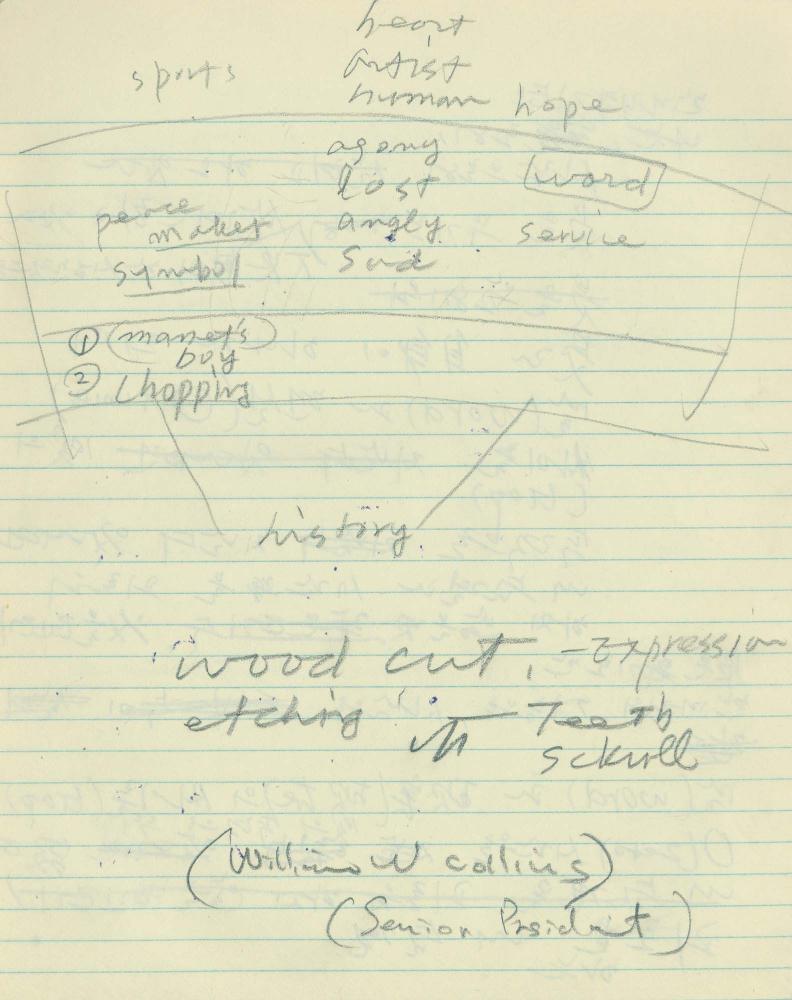 heart
artist
sports
human hope
agony
lost
word
peace
maker
angly
service
symbol
sad
① manet's
boy
② Chopping
history
wood cut, - Expression
etching
Teeth
sckull
(William W collins)
(Senior Prsident)